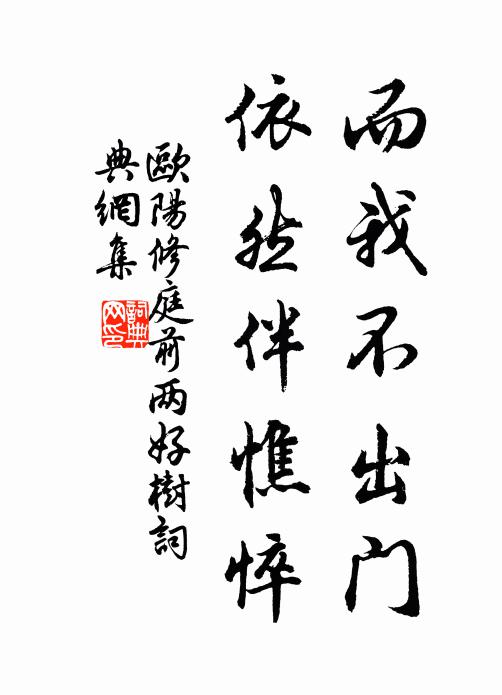 而我不出门
依然伴憔悴
歐陽修庭前两好樹詞
典網集
詞典网印